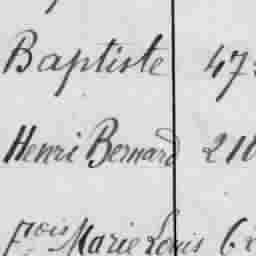 Baptiste 47
Henri Bernard 210
Fçois Marie Louis 62